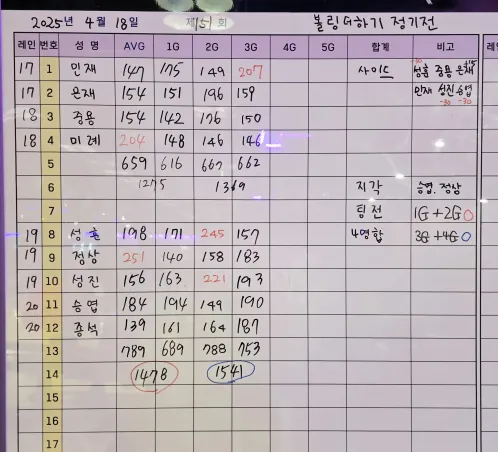 2025년 4월 18일 제151회 볼링더하기 정기전
레인 번호 성명 AVG 1G 2G 3G 4G 5G 합계 비고 레인
17 1 민재 147 175 149 207 사이드 성훈 중용 은재
17 2 은재 154 151 196 159 민재 성진 승엽
-30 -30
18 3 중용 154 142 176 150
18 4 미례 204 148 146 146
5 659 616 667 662
6 1275 1369 지각 승엽. 정상
7 팀전 1G+2G O
19 8 성훈 198 171 245 157 4명합 3G+4G O
19 9 정상 251 140 158 183
19 10 성진 156 163 221 193
20 11 승엽 184 194 149 190
20 12 종석 139 161 164 187
13 789 689 788 753
14 1478 1541
15
16
17